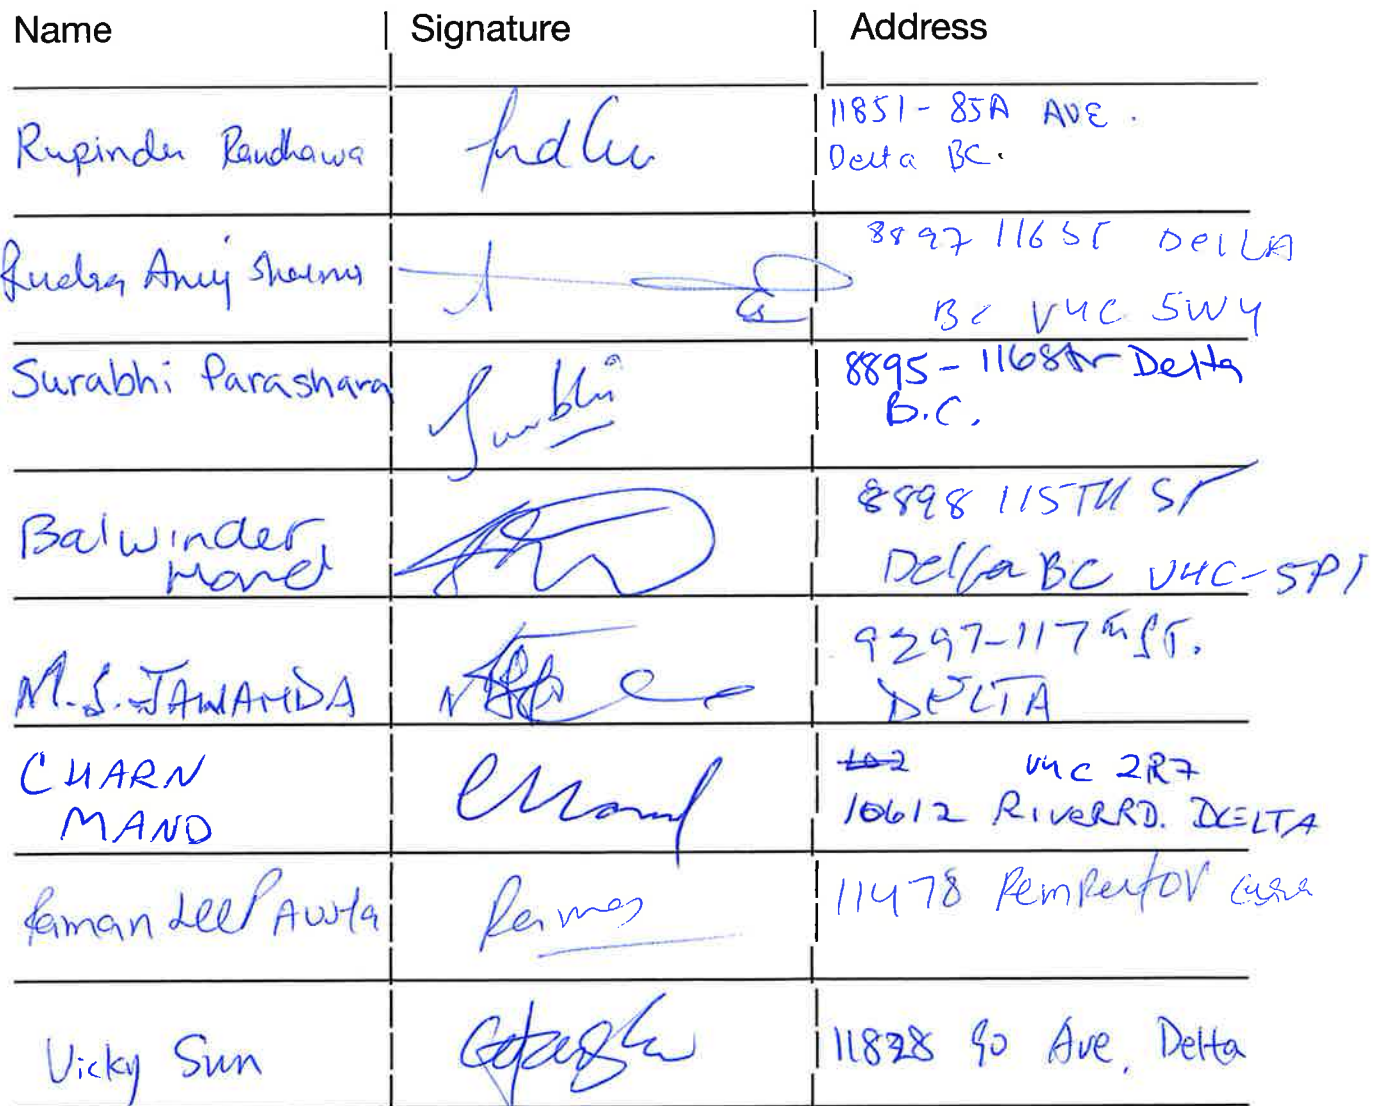 Name | Signature | Address
Rupinder Randhawa
11851 - 85A AVE.
Delta BC.
Rudra Anuj Sharma
8897 116 ST DELTA
BC V4C 5W4
Surabhi Parashara
8895 - 116 Str Delta
B.C.
Balwinder
Mand
8898 115TH ST
Delta BC V4C-5P1
M.S. JAWANDA
9297-117th ST.
DELTA
CHARN
MAND
V4C 2R7
10612 RIVER RD. DELTA
11478
Vicky Sun
11828 90 Ave, Delta